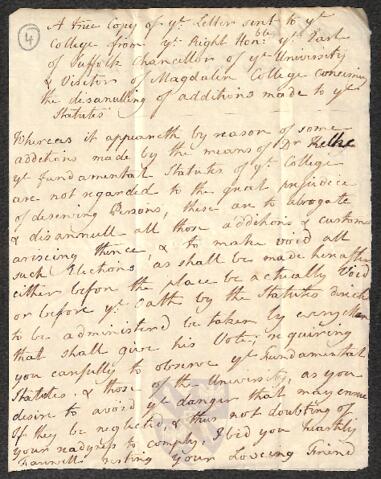 4
A true Copy of ye. Letter sent to ye
College from ye. Right Honble. ye. Earl
of Suffolk Chancellor of ye. University
& Visitors of Magdalin College concerning
the disanulling of additions made to ye
Statutes
Whereas it appeareth by reason of some
additions made by the means of Dr Kelke
ye fundamental Statutes of ye. College
are not regarded to the great prejudice
of deserving Persons, these are to abrogate
& disannull all those additions & customs
ariseing thence, & to make void all
such Elections as shall be made hereafter
either before the place be actually Void
or before ye. oath by the Statutes directed
to be administerd be taken by every Man
that shall give his Vote, requiring
you carefully to observe ye. fundamental
Statutes, & those of the University, as you
desire to avoid ye danger that may ensue
If they be neglected, & thus not doubting of
your readyness to comply, I bid you heartily
Farewell resting your Loveing Friend